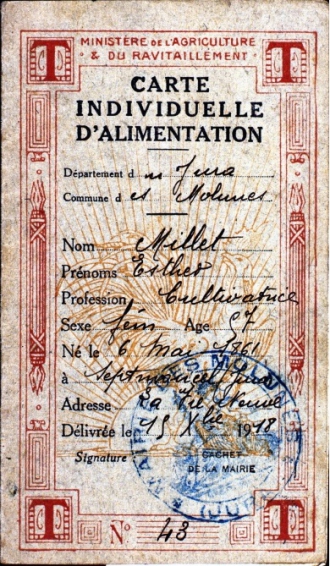 T MINISTÈRE DE L'AGRICULTURE T
& DU RAVITAILLEMENT
CARTE
INDIVIDUELLE
D'ALIMENTATION
Département du Jura
Commune des Molunes
Nom Millet
Prénoms Esther
Profession Cultivatrice
Sexe fém Age 57
Né le 6 Mai 1861
à Septmoncel Jura
Adresse La Vie Neuve
Délivrée le 15 Xbre 1918
Signature CACHET
DE LA MAIRIE
MAIRIE DES MOLUNES (JURA)
T No 43 T